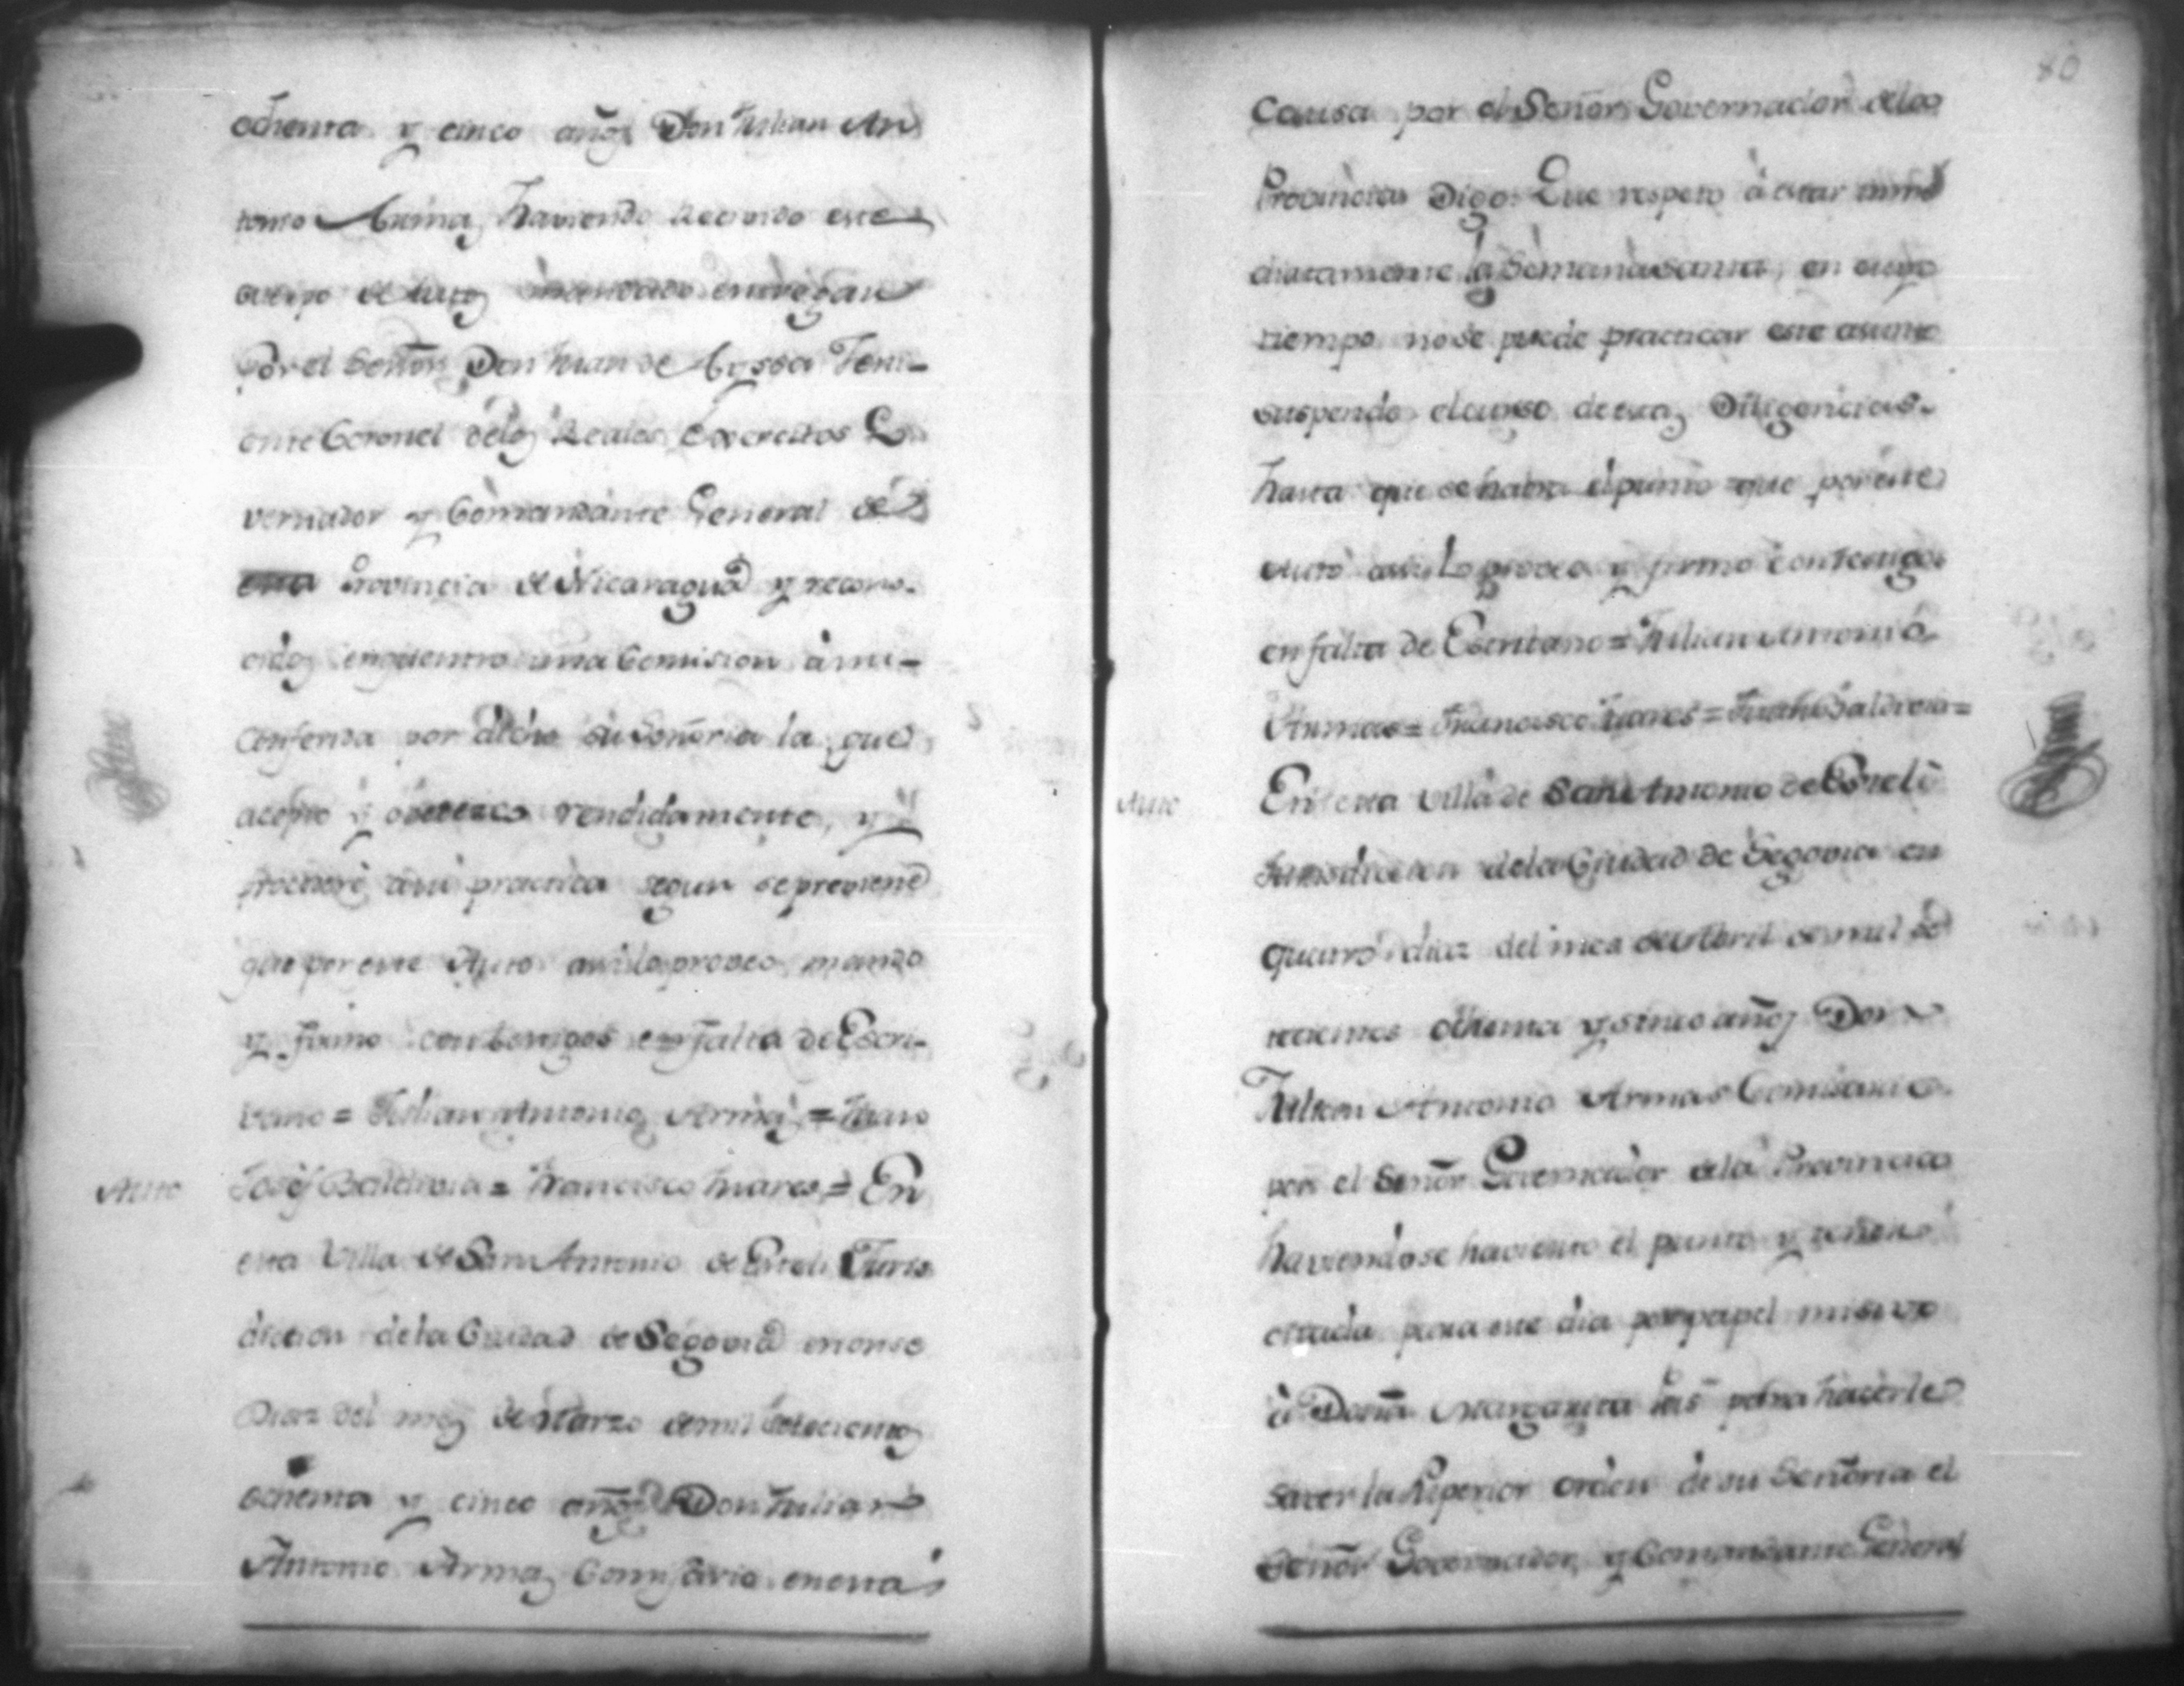 ochenta y cinco años Don Julian An
tonio Armas, haviendo Recivido este
cuerpo de autos mandado entregar
Por el Señor Don Juan de Ayssa Teni-
ente Coronel delos Reales Exercitos Go
vernador y Comandante General de
esta Provincia de Nicaragua y recono-
cidos enquentro una Comision àmi-
conferida por dicho su Señoria la que
acepto y obedezco rendidamente, y
procederé asu practica segun se previene
que por este Auto assi lo proveo, mando
y firmo con testigos en falta de Escri-
bano = Julian Antonio Armas = Juan
Auto
José Baldivia = Francisco Juares = En
esta Villa de San Antonio de Esteli Juris
diccion dela Ciudad de Segovia en onse
Dias del mes de Marzo de mil setecientos
ochenta y cinco años Don Julian
Antonio Armas Comissario en esta
80
Causa por el Señor Governador delas
Provincias Digo: Que respeto à estar inme
diatamente la Semana santa, en cuyo
tiempo no se puede practicar este asunto
suspendo el curso de estas Diligencias
hasta que se habra el punto que por este
auto assi Lo proveo y firmo con testigos
en falta de Escrivano = Julian Antonio
Armas = Francisco Juares = Juan Baldivia =
Auto
En esta Villa de San Antonio de Esteli
Jurisdiccion dela Ciudad de Segovia en
quatro dias del mes de Abril de mil se
tecientos ochenta y sinco años Don
Julian Antonio Armas Comisario
por el Señor Governador dela Provincia
haviendose havierto el punto y
citada para este dia por papel misivo
à Doña Margarita para hacerle
saver la Superior orden de su Señoria el
Señor Governador, y Comandante General